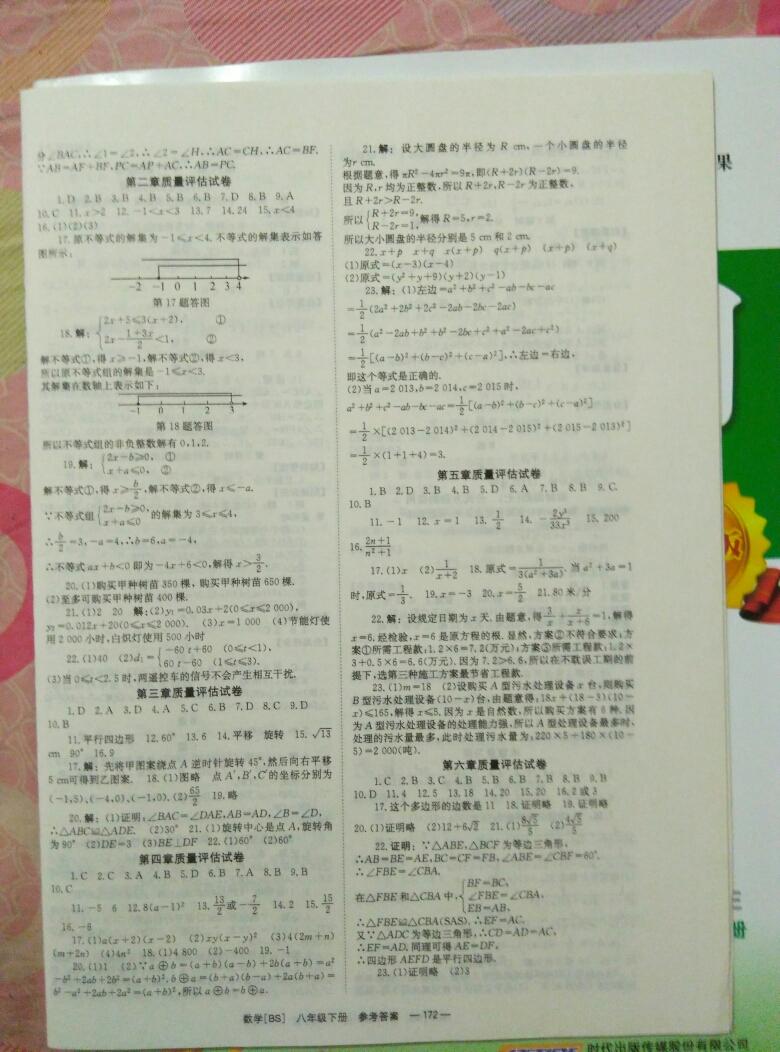 分∠BAC,∴∠1=∠2,∴∠2=∠H,∴AC=CH,∴AC=BF.
∵AB=AF+BF,PC=AP+AC,∴AB=PC.
第二章质量评估试卷
1.D 2.B 3.B 4.B 5.B 6.B 7.D 8.B 9.A
10.C 11.x>2 12.-1<x<3 13.7 14.24 15.x<4
16.(1)(2)(3)
17.原不等式的解集为-1≤x<4.不等式的解集表示如答
图所示:
-2 -1 0 1 2 3 4
第17题答图
18.解:{2x+5≤3(x+2), ①
2x-(1+3x)/2<1, ②
解不等式①,得x≥-1,解不等式②,得x<3,
所以原不等式组的解集是-1≤x<3.
其解集在数轴上表示如下:
-1 0 1 2 3
第18题答图
所以不等式组的非负整数解有0,1,2.
19.解:{2x-b≥0, ①
x+a≤0, ②
解不等式①,得x≥b/2,解不等式②,得x≤-a.
∵不等式组{2x-b≥0, x+a≤0 的解集为3≤x≤4,
∴b/2=3,-a=4,∴b=6,a=-4,
∴不等式ax+b<0即为-4x+6<0,解得x>3/2.
20.(1)购买甲种树苗350棵,购买甲种树苗650棵.
(2)至多可购买甲种树苗400棵.
21.(1)2 20 解:(2)y₁=0.03x+2(0≤x≤2 000),
y₂=0.012x+20(0≤x≤2 000). (3)x=1 000 (4)节能灯使
用2 000小时,白炽灯使用500小时
22.(1)40 (2)d₁={-60t+60 (0≤t<1),
60t-60 (1≤t≤3).
(3)当0≤t<2.5时,两遥控车的信号不会产生相互干扰.
第三章质量评估试卷
1.D 2.A 3.D 4.A 5.C 6.B 7.D 8.C 9.D
10.B
11.平行四边形 12.60° 13.6 14.平移 旋转 15.√13
cm 90° 16.9
17.解:先将甲图案绕点A逆时针旋转45°,然后向右平移
5 cm可得到乙图案. 18.(1)图略 点A′,B′,C′的坐标分别为
(-1,5),(-4,0),(-1,0).(2)65/2 19.略
20.解:(1)证明:∠BAC=∠DAE,AB=AD,∠B=∠D,
∴△ABC≌△ADE. (2)30° 21.(1)旋转中心是点A,旋转角
为90° (2)DE=3 (3)BE⊥DF 22.(1)60° (2)60°
第四章质量评估试卷
1.C 2.C 3.A 4.B 5.D 6.B 7.A 8.B 9.B
10.C
11.-5 6 12.8(a-1)² 13.13/2或-7/2 14.2 15.15/2
16.-6
17.(1)a(x+2)(x-2) (2)xy(x-y)² (3)4(2m+n)
(m+2n) (4)4n² 18.(1)4 800 (2)-400 19.-1
20.(1)1 (2)∵a⊕b=(a+b)(a-b)+2b(a+b)=a²
-b²+2ab+2b²=(a+b)²,b⊕a=(b+a)(b-a)+2a(b+a)=
b²-a²+2ab+2a²=(a+b)²,所以a⊕b=b⊕a.
21.解:设大圆盘的半径为R cm,一个小圆盘的半径
为r cm.
根据题意,得πR²-4πr²=9π,即(R+2r)(R-2r)=9.
因为R,r均为正整数,所以R+2r,R-2r为正整数,
且R+2r>R-2r.
所以{R+2r=9, R-2r=1, 解得R=5,r=2.
所以大小圆盘的半径分别是5 cm和2 cm.
22.x+p x+q x(x+p) q(x+p) (x+p) (x+q)
(1)原式=(x-3)(x-4)
(2)原式=(y²+y+9)(y+2)(y-1)
23.解:(1)左边=a²+b²+c²-ab-bc-ac
=1/2(2a²+2b²+2c²-2ab-2bc-2ac)
=1/2(a²-2ab+b²+b²-2bc+c²+a²-2ac+c²)
=1/2[(a-b)²+(b-c)²+(c-a)²],∴左边=右边,
即这个等式是正确的.
(2)当a=2 013,b=2 014,c=2 015时,
a²+b²+c²-ab-bc-ac=1/2[(a-b)²+(b-c)²+(c-a)²]
=1/2×[(2 013-2 014)²+(2 014-2 015)²+(2 015-2 013)²]
=1/2×(1+1+4)=3.
第五章质量评估试卷
1.B 2.D 3.B 4.B 5.D 6.A 7.B 8.B 9.C.
10.B
11.-1 12.x=1 13.1/2 14.-2y³/33x³ 15.200
16.(2n+1)/(n²+1)
17.(1)x (2)1/(x+2) 18.原式=1/3(a²+3a).当a²+3a=1
时,原式=1/3. 19.x=-3 20.x=5/2 21.80米/分
22.解:设规定日期为x天.由题意,得3/x+x/(x+6)=1,解得
x=6.经检验,x=6是原方程的根.显然,方案②不符合要求;方
案①所需工程款:1.2×6=7.2(万元),方案③所需工程款:1.2×
3+0.5×6=6.6(万元).因为7.2>6.6,所以在不耽误工期的前
提下,选第三种施工方案最节省工程款.
23.(1)m=18 (2)设购买A型污水处理设备x台,则购买
B型污水处理设备(10-x)台,由题意得,18x+(18-3)(10-
x)≤165,解得x≤5.因为x是自然数,所以购买方案有6种.因
为A型污水处理设备的处理能力强,所以A型处理设备最多时,
处理的污水量最多,此时处理污水量为:220×5+180×(10-
5)=2 000(吨).
第六章质量评估试卷
1.C 2.B 3.C 4.B 5.B 6.B 7.B 8.B 9.B
10.D 11.4 12.5 13.18 14.20 15.20 16.2或3
17.这个多边形的边数是11 18.证明略 19.证明略
20.(1)证明略 (2)12+6√2 21.(1)8√5/5 (2)4√5/5
22.证明:∵△ABE,△BCF为等边三角形,
∴AB=BE=AE,BC=CF=FB,∠ABE=∠CBF=60°.
∴∠FBE=∠CBA.
在△FBE和△CBA中,{BF=BC,
∠FBE=∠CBA,
EB=AB,
∴△FBE≌△CBA(SAS).∴EF=AC.
又∵△ADC为等边三角形,∴CD=AD=AC,
∴EF=AD.同理可得AE=DF,
∴四边形AEFD是平行四边形.
23.(1)证明略 (2)3
数学[BS] 八年级下册 参考答案 —172—
果
册
时代出版传媒股份有限公司